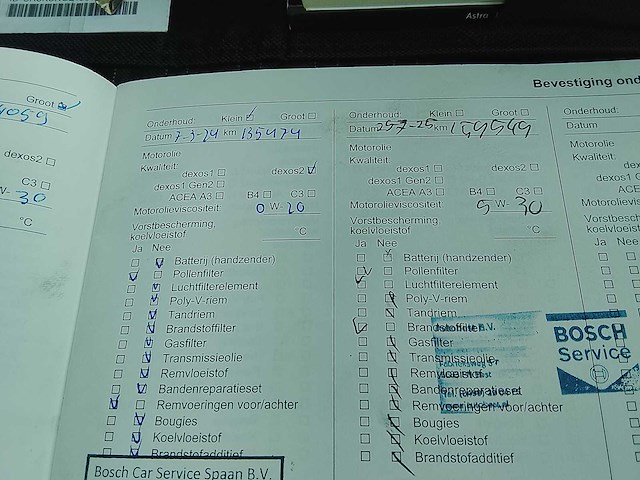 Astra
Bevestiging ond
Groot
C3
W- 30
°C
dexos2
Onderhoud: Klein Groot
Datum 7-3-24 km 135474
Motorolie
Kwaliteit:
dexos1 dexos2
dexos1 Gen2
ACEA A3 B4 C3
Motorolieviscositeit: 0 W- 20
Vorstbescherming,
koelvloeistof °C
Ja Nee
Batterij (handzender)
Pollenfilter
Luchtfilterelement
Poly-V-riem
Tandriem
Brandstoffilter
Gasfilter
Transmissieolie
Remvloeistof
Bandenreparatieset
Remvoeringen voor/achter
Bougies
Koelvloeistof
Brandstofadditief
Bosch Car Service Spaan B.V.
Onderhoud: Klein Groot
Datum 25-7-25 km 159549
Motorolie
Kwaliteit:
dexos1 dexos2
dexos1 Gen2
ACEA A3 B4 C3
Motorolieviscositeit: 5 W- 30
Vorstbescherming,
koelvloeistof °C
Ja Nee
Batterij (handzender)
Pollenfilter
Luchtfilterelement
Poly-V-riem
Tandriem
Brandstoffilter
Gasfilter
Transmissieolie
Remvloeistof
Bandenreparatieset
Remvoeringen voor/achter
Bougies
Koelvloeistof
Brandstofadditief
BOSCH
Service
Onderhoud:
Datum
Motorolie
Kwaliteit:
Ja Nee